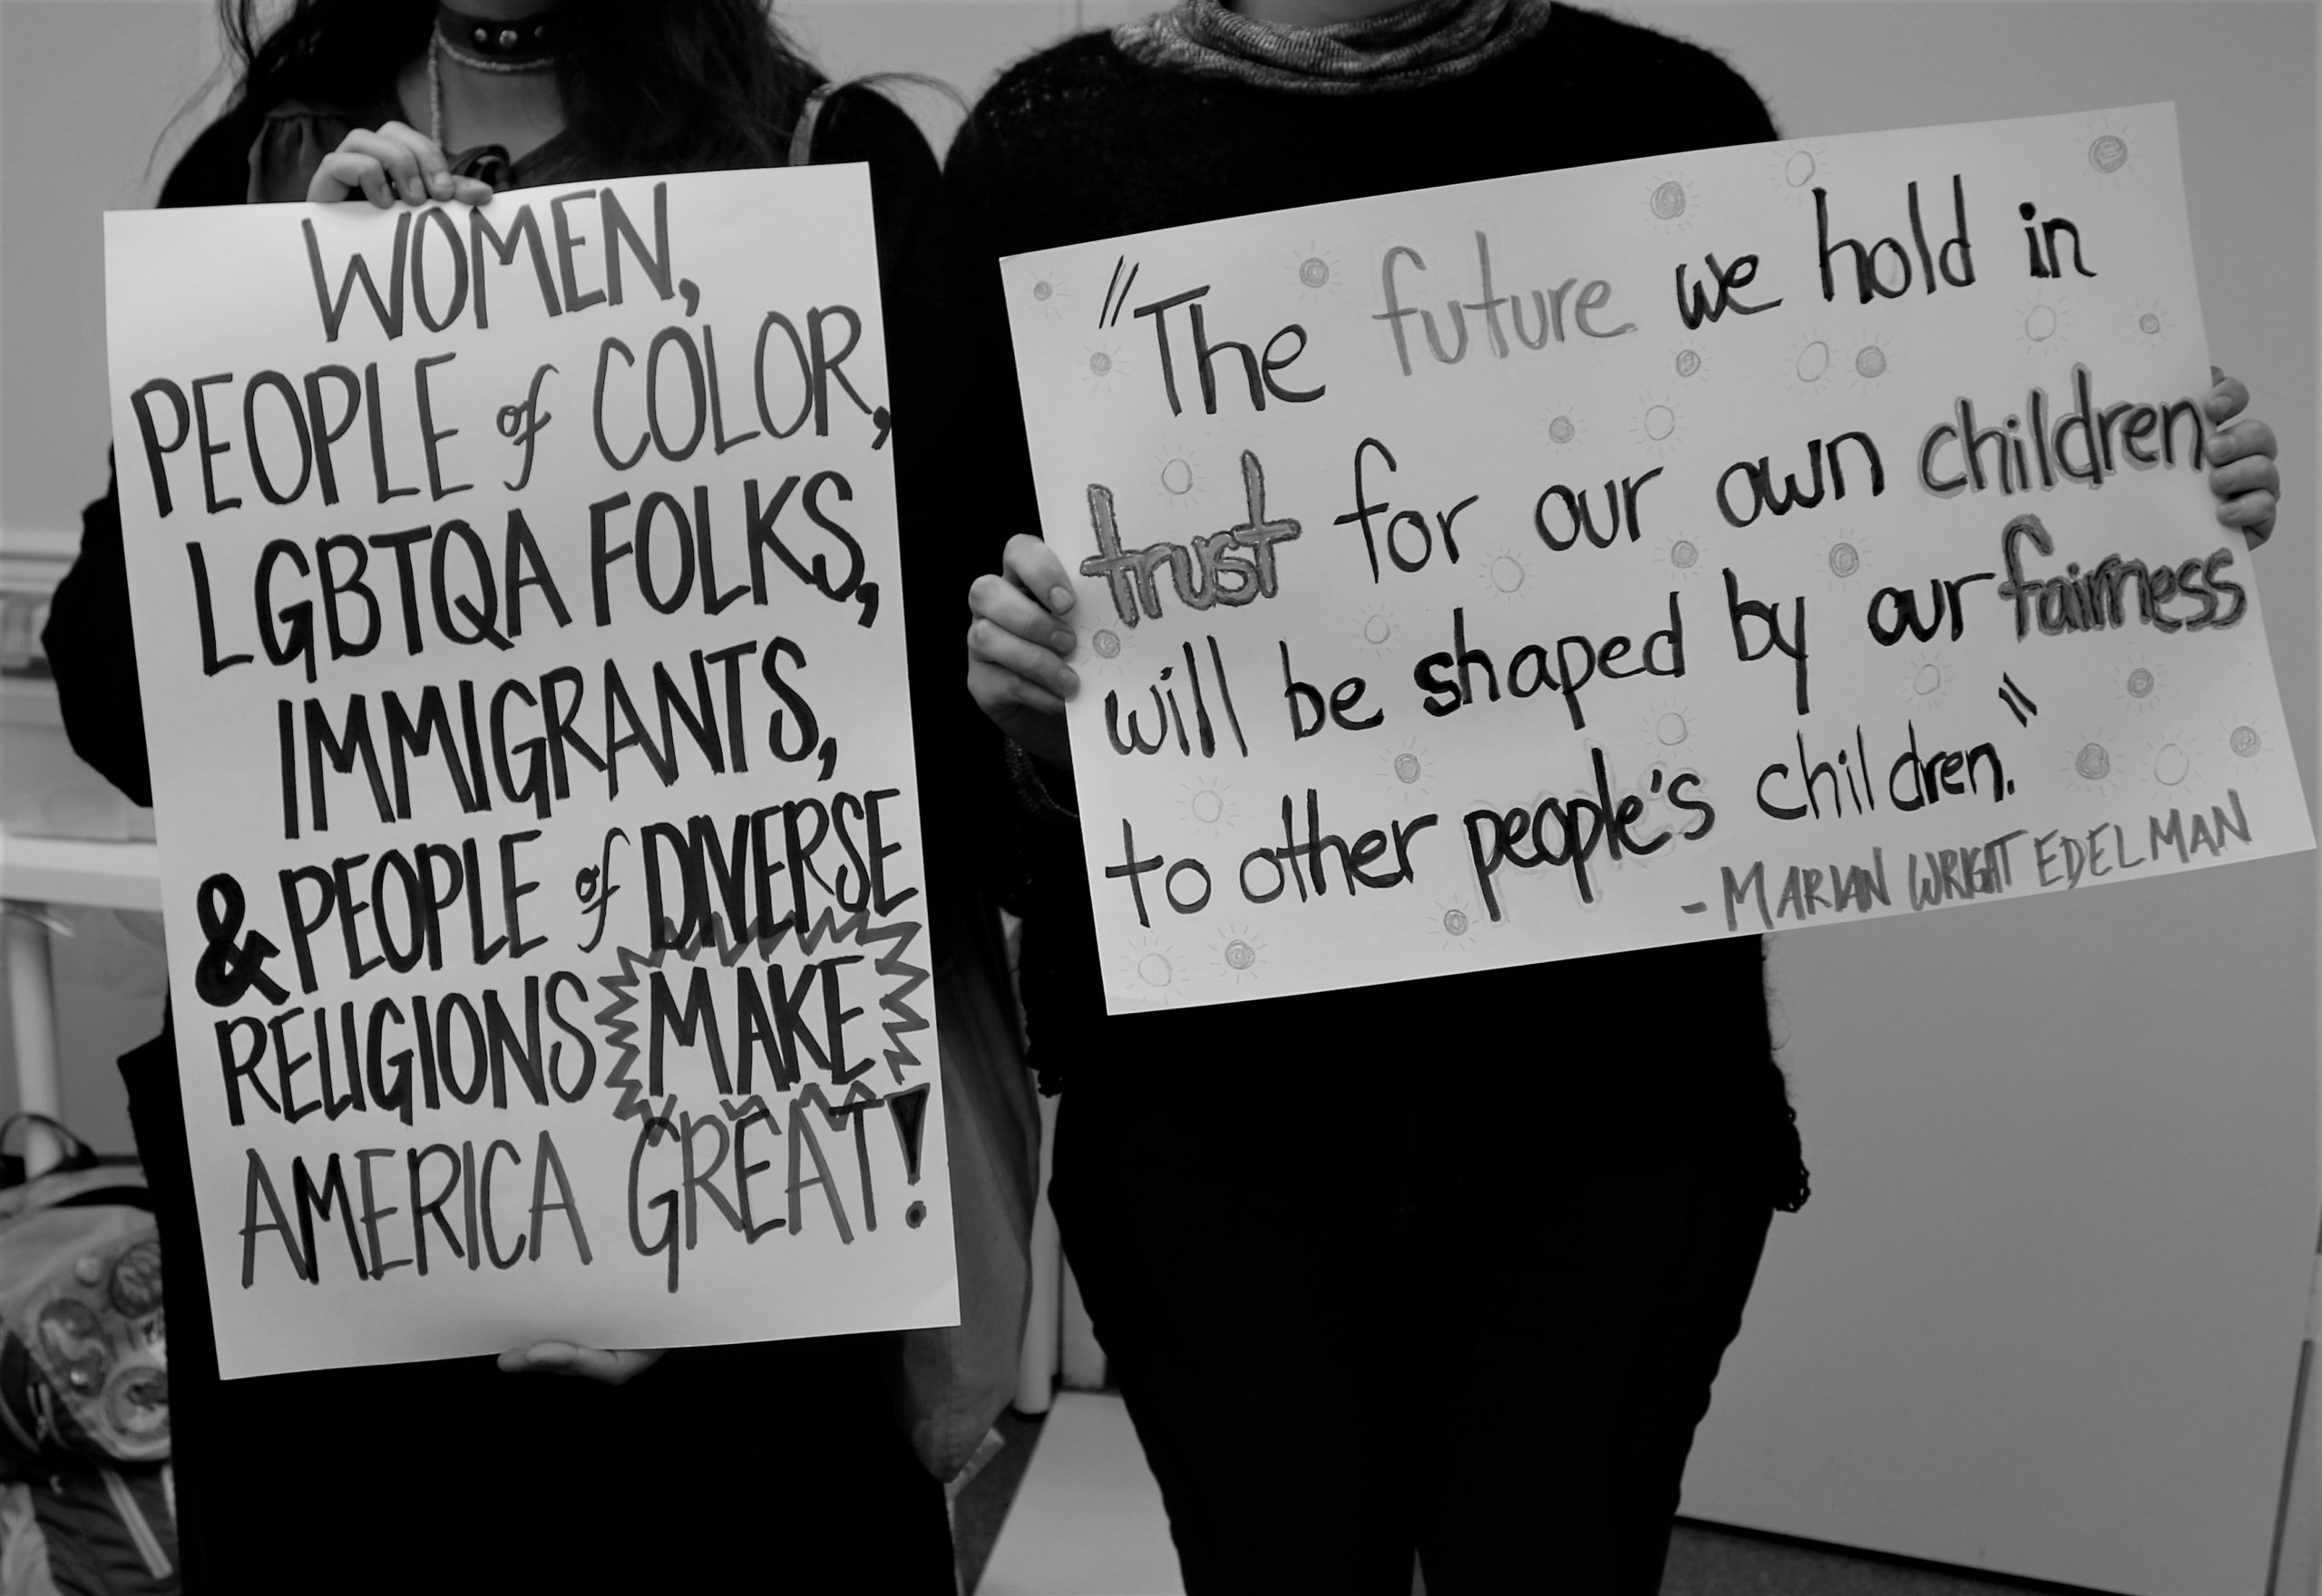 WOMEN,
PEOPLE of COLOR,
LGBTQA FOLKS,
IMMIGRANTS,
& PEOPLE of DIVERSE
RELIGIONS MAKE
AMERICA GREAT!
"The future we hold in
trust for our own children
will be shaped by our fairness
to other people's children."
- MARIAN WRIGHT EDELMAN